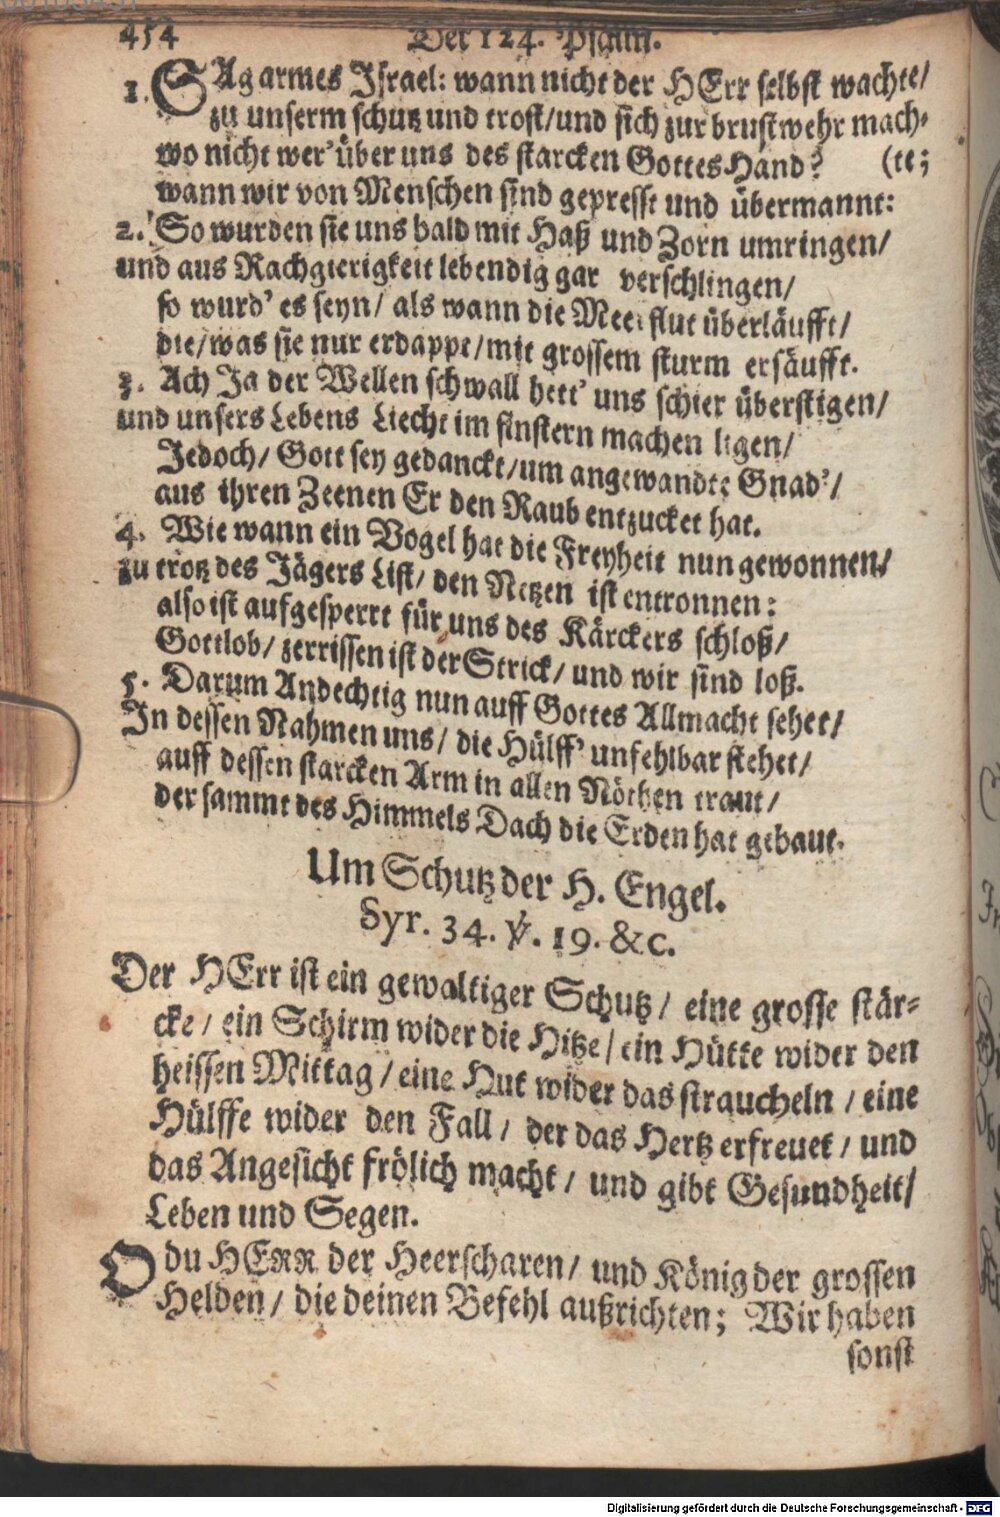 454 Der 124. Psalm.
1. SAg armes Israel: wann nicht der HErr selbst wachte/
zu unserm schutz und trost/und sich zur brustwehr mach-
wo nicht wer' über uns des starcken Gottes Hand? (te;
wann wir von Menschen sind gepresst und übermannt:
2. So wurden sie uns bald mit Haß und Zorn umringen/
und aus Rachgierigkeit lebendig gar verschlingen/
so wurd' es seyn/ als wann die Meer flut überläufft/
die/was sie nur erdappt/mit grossem sturm ersäufft.
3. Ach Ja der Wellen schwall hett' uns schier überstigen/
und unsers Lebens Liecht im finstern machen ligen/
Jedoch/ Gott sey gedanckt/um angewandte Gnad'/
aus ihren Zeenen Er den Raub entzucket hat.
4. Wie wann ein Vogel hat die Freyheit nun gewonnen/
zu trotz des Jägers List/ den Netzen ist entronnen:
also ist aufgesperrt für uns des Kärckers schloß/
Gottlob/ zerrissen ist der Strick/ und wir sind loß.
5. Darum Andechtig nun auff Gottes Allmacht sehet/
In dessen Nahmen uns/ die Hülff' unfehlbar stehet/
auff dessen starcken Arm in allen Nöthen traut/
der sammt des Himmels Dach die Erden hat gebaut.
Um Schutz der H. Engel.
Syr. 34. ℣. 19. &c.
Der HErr ist ein gewaltiger Schutz/ eine grosse stär-
cke/ ein Schirm wider die Hitze/ ein Hütte wider den
heissen Mittag/ eine Hut wider das straucheln/ eine
Hülffe wider den Fall/ der das Hertz erfreuet/ und
das Angesicht frölich macht/ und gibt Gesundheit/
Leben und Segen.
O du HERR der Heerscharen/ und König der grossen
Helden/ die deinen Befehl außrichten; Wir haben
sonst
Digitalisierung gefördert durch die Deutsche Forschungsgemeinschaft - DFG